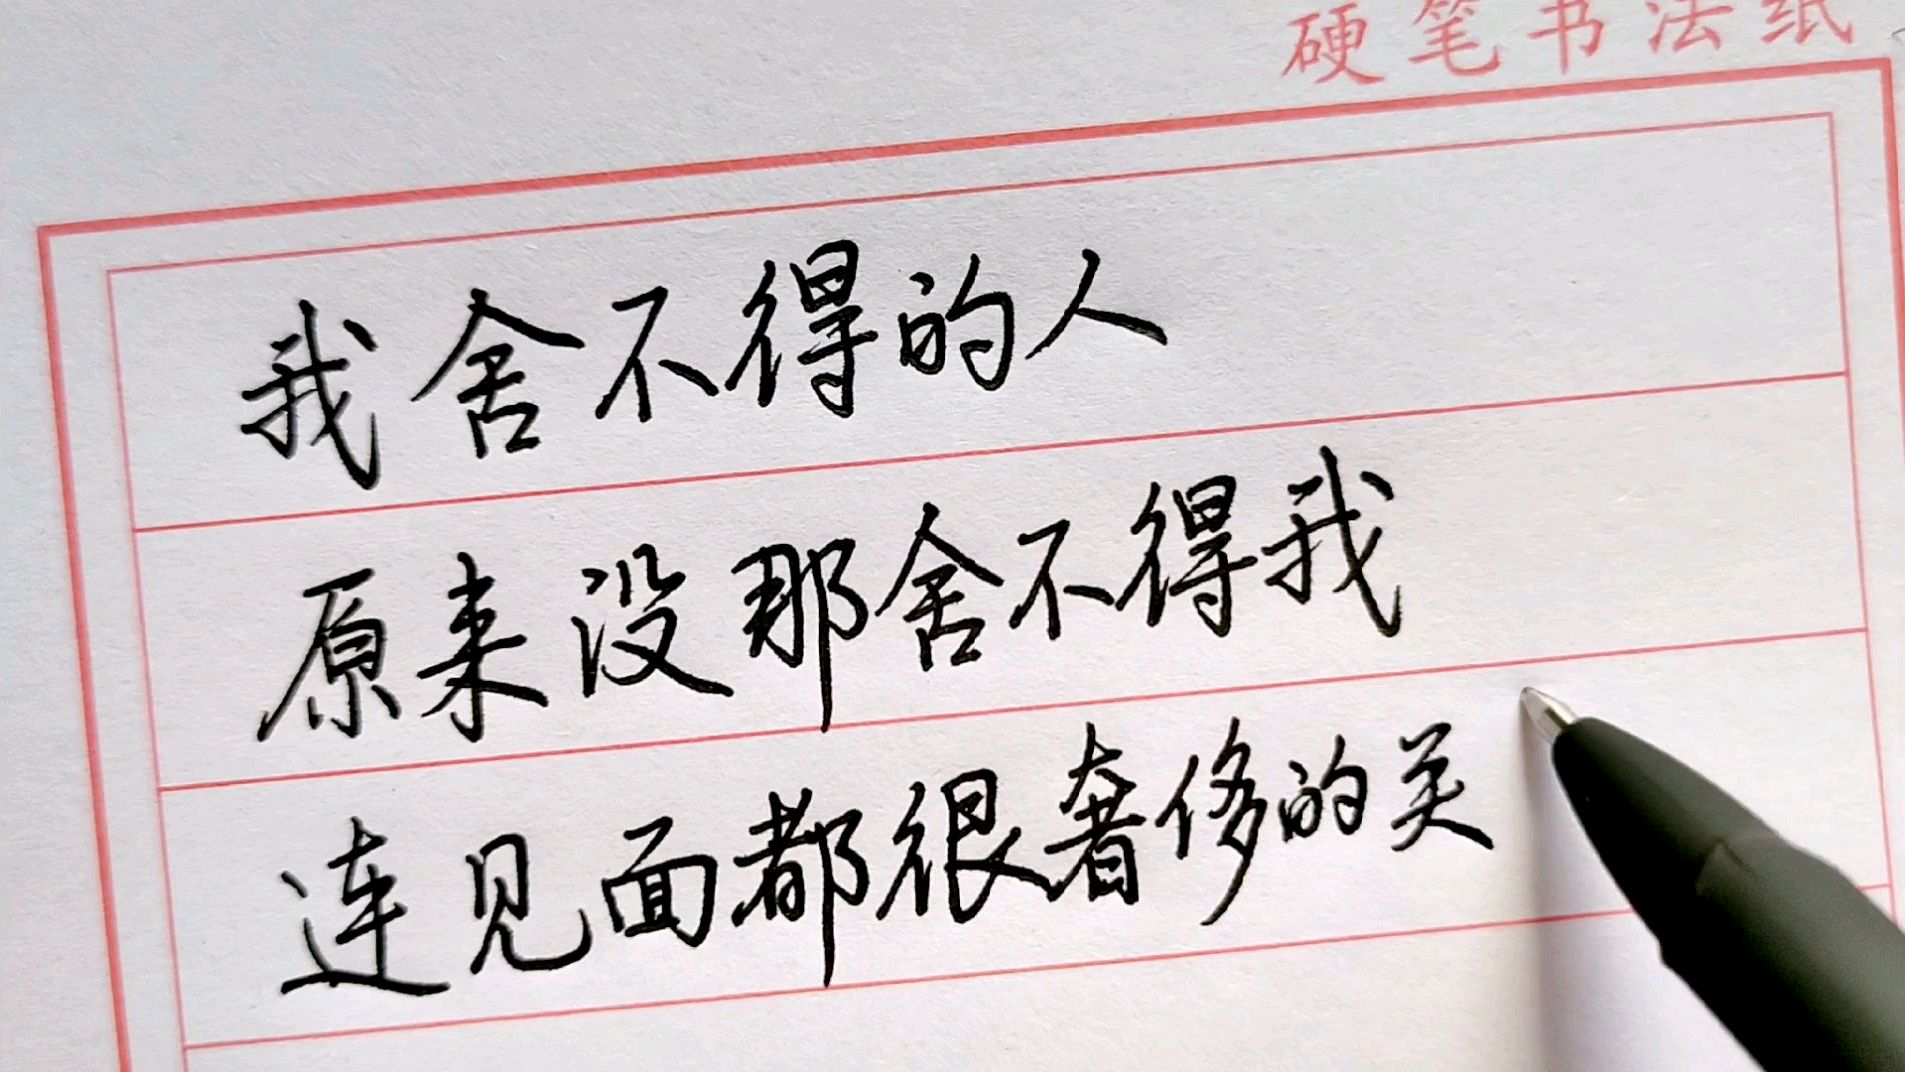 硬笔书法纸
我舍不得的人
原来没那舍不得我
连见面都很奢侈的关